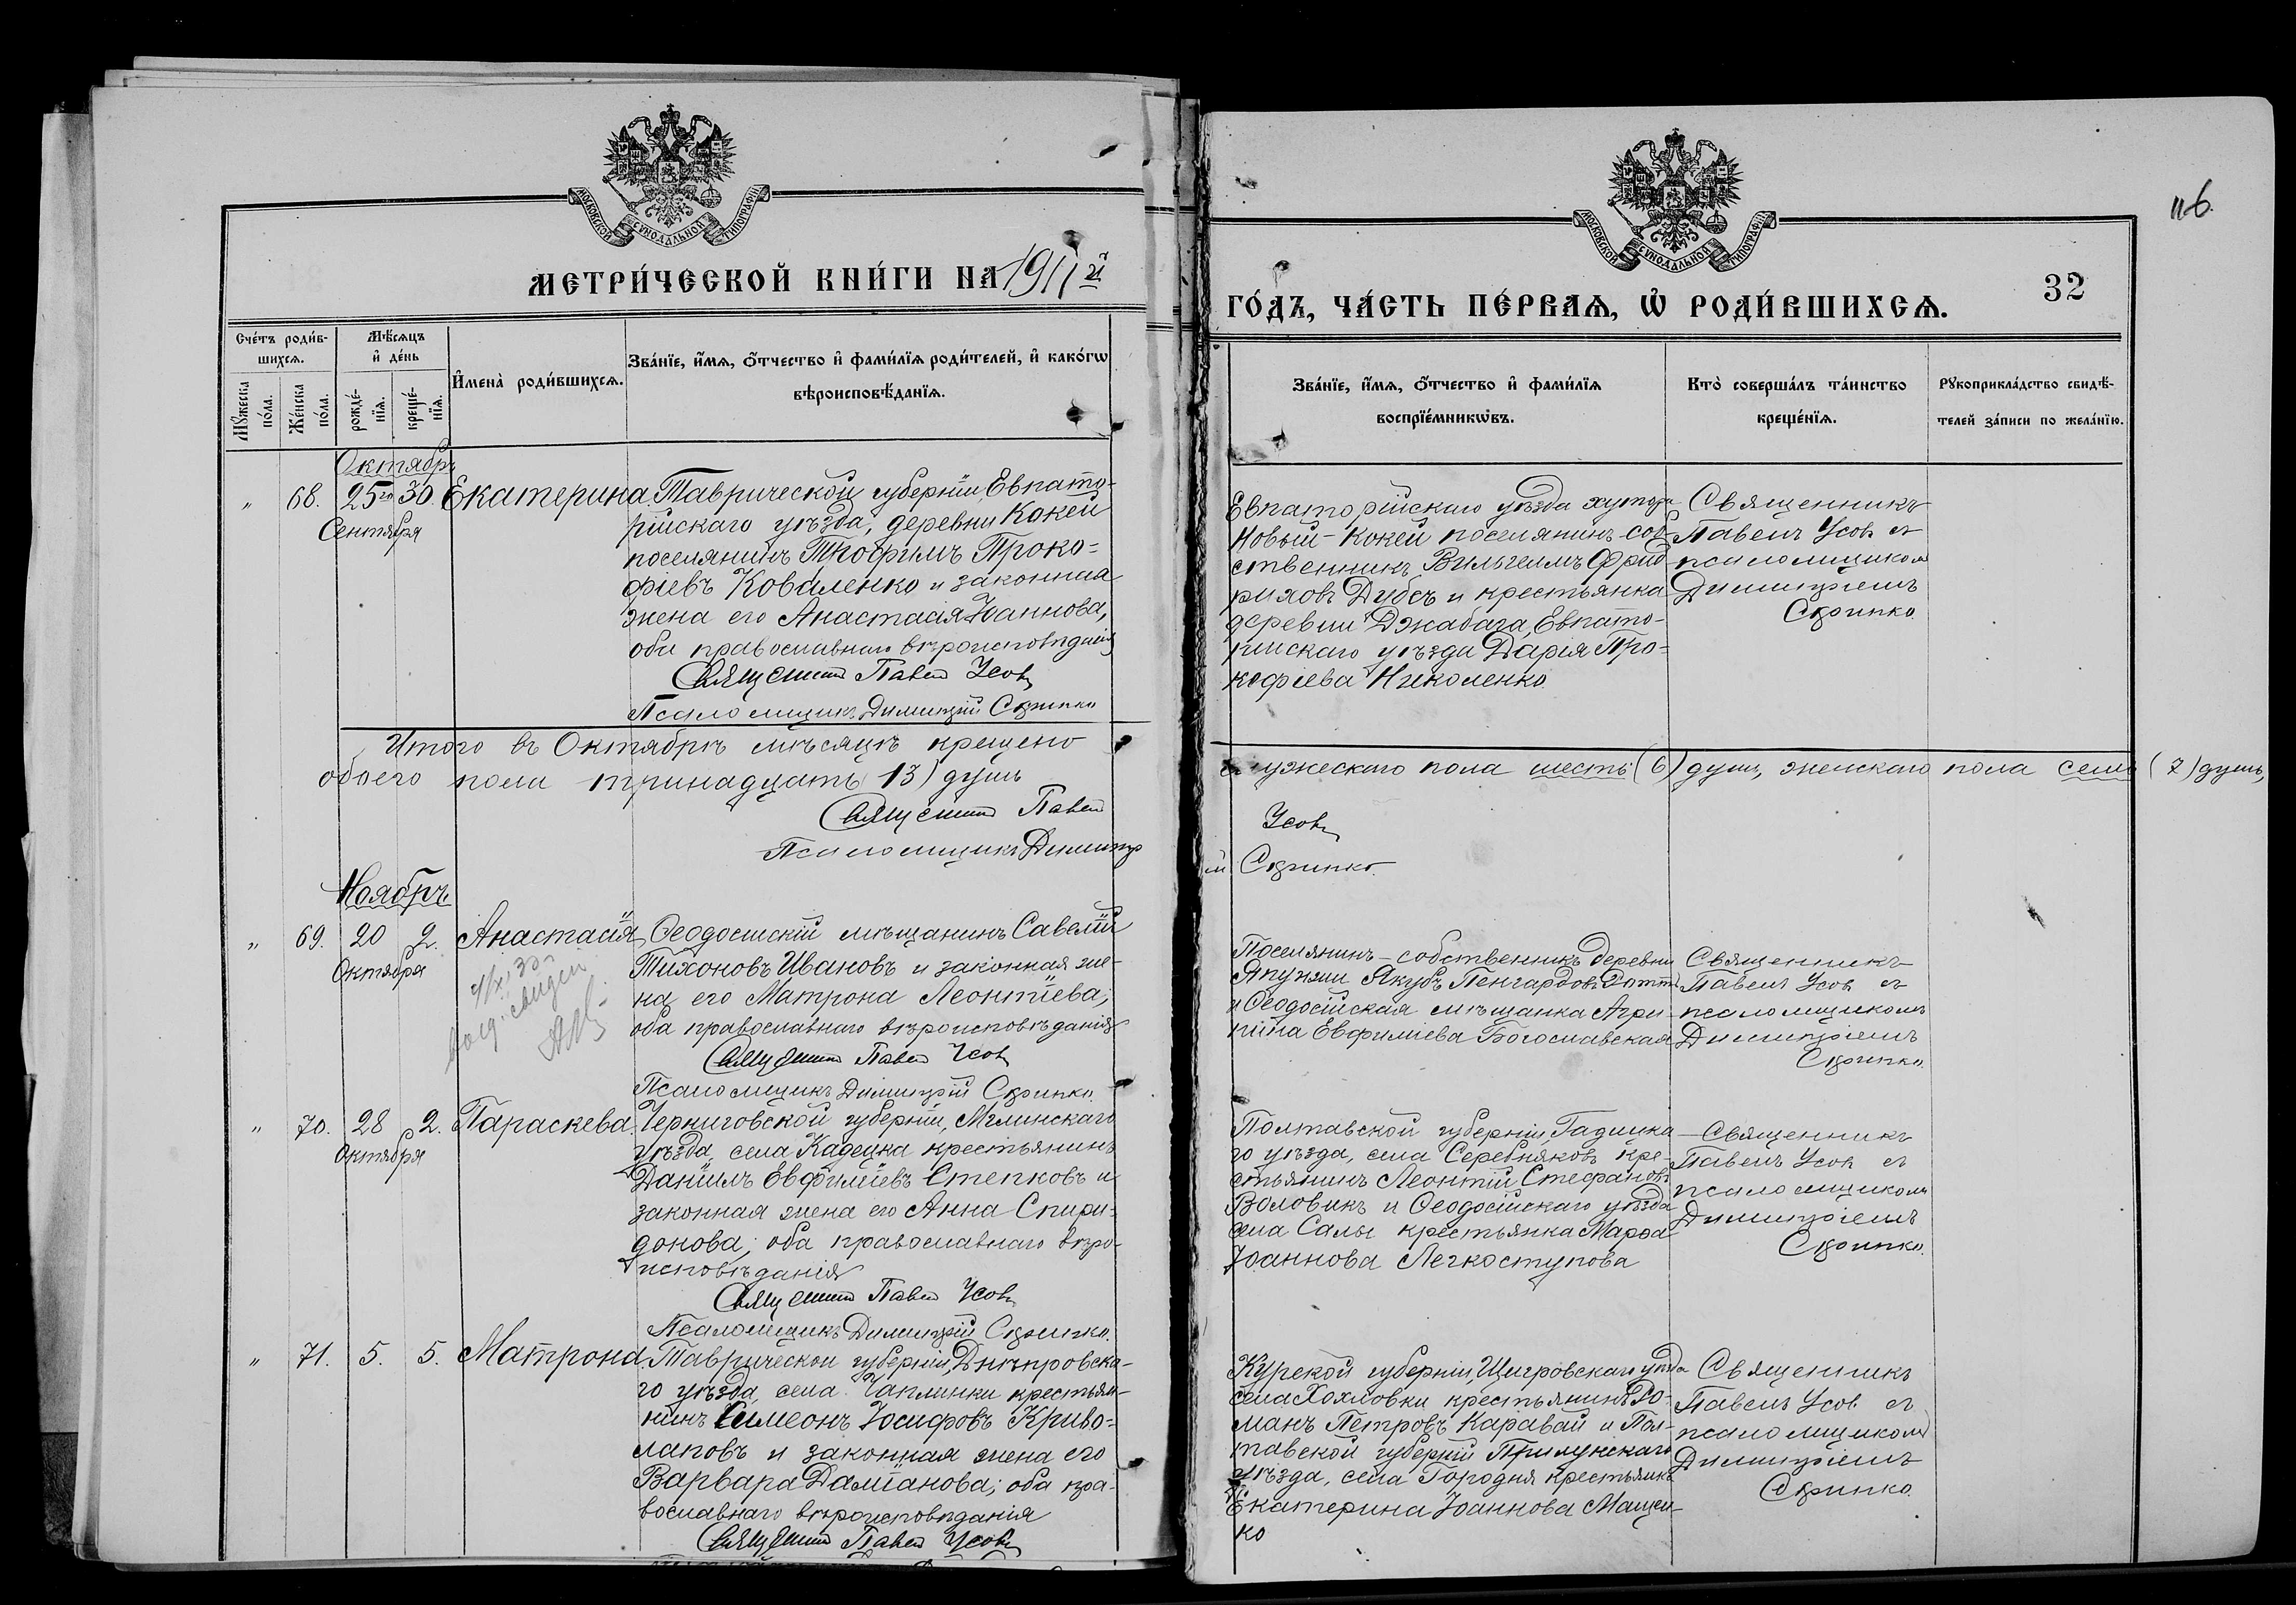 МОСКОВСКОЙ СѴНОДАЛЬНОЙ ТИПОГРАФІИ
МЕТРИ́ЧЕСКОЙ КНИ́ГИ НА 1911 й
Сче́тъ роди́в-
шихсѧ.
Мѣ́сѧцъ
и҆ де́нь
Мꙋ́жеска
по́ла.
Же́нска
по́ла.
рожде́-
нїѧ.
креще́-
нїѧ.
И҆мена̀ роди́вшихсѧ.
Зва́нїе, и҆́мѧ, ѻ҆́тчество и҆ фами́лїѧ роди́телей, и҆ како́гѡ
вѣроисповѣ́данїѧ.
Октябрь
„ 68. 25го 30. Екатерина
Сентября
Таврической губерніи, Евпато-
рійскаго уѣзда, деревни Кокей
поселянинъ Трофимъ Проко=
фіевъ Коваленко и законная
жена его Анастасія Іоаннова,
оба православнаго вѣроисповѣданія
Священникъ Павелъ Усовъ
Псаломщикъ Димитрій Скрипко
Итого въ Октябрѣ мѣсяцѣ крещено
обоего пола тринадцать (13) душъ
Священникъ Павелъ
Псаломщикъ Димитр
Ноябрь
„ 69. 20 2. Анастасія
Октября
Ѳеодосійскій мѣщанинъ Савелій
Тихоновъ Ивановъ и законная же-
на его Матрона Леонтіева;
оба православнаго вѣроисповѣданія
Священникъ Павелъ Усовъ
Псаломщикъ Димитрій Скрипко.
„ 70. 28 2. Параскева
Октября
Черниговской губерніи, Мглинскаго
уѣзда, села Кадецка крестьянинъ
Даніилъ Евфиміевъ Степковъ и
законная жена его Анна Спири=
донова; оба православнаго вѣро-
исповѣданія
Священникъ Павелъ Усовъ
Псаломщикъ Димитрій Скрипко.
„ 71. 5. 5. Матрона
Таврической губерніи, Днѣпровска-
го уѣзда села Чаплинки крестьян-
нинъ Симеонъ Іосифовъ Криво=
лаповъ и законная жена его
Варвара Даміанова; оба пра-
вославнаго вѣроисповѣданія
Священникъ Павелъ Усовъ
116.
МОСКОВСКОЙ СѴНОДАЛЬНОЙ ТИПОГРАФІИ
32
ГО́ДЪ, ЧА́СТЬ ПЕ́РВАѦ, Ѽ РОДИ́ВШИХСѦ.
Зва́нїе, и҆́мѧ, ѻ҆́тчество и҆ фами́лїѧ
воспрїе́мникѡвъ.
Кто̀ соверша́лъ та́инство
креще́нїѧ.
Рꙋкоприкла́дство свидѣ́-
телей за́писи по жела́нїю.
Евпаторійскаго уѣзда хутора
Новый-Кокей поселянинъ соб-
ственникъ Вильгельмъ Фрид-
риховъ Дубсъ и крестьянка
деревни Джабага, Евпато-
рійскаго уѣзда Дарія Про-
кофіева Николенко
Священникъ
Павелъ Усовъ съ
псаломщикомъ
Димитріемъ
Скрипко
мужескаго пола шесть (6) душъ, женскаго пола семь (7) душъ,
Усовъ
ій Скрипко.
Поселянинъ-собственникъ деревни
Якубъ
и Ѳеодосійская мѣщанка Агри-
пина Евфиміева Богославская
Священникъ
Павелъ Усовъ съ
псаломщикомъ
Димитріемъ
Скрипко.
Полтавской губерніи, Гадяцка-
го уѣзда, села Серебняковъ кре-
стьянинъ Леонтій Стефановъ
Воловикъ и Ѳеодосійскаго уѣзда
села Салы крестьянка Марѳа
Іоаннова Легкоступова
Священникъ
Павелъ Усовъ съ
псаломщикомъ
Димитріемъ
Скрипко.
Курской губерніи, Щигровскаго уѣзда
села Хохловки крестьянинъ Ро-
манъ Петровъ Каравай и Пол-
тавской губерніи Прилукскаго
уѣзда, села Городня крестьянка
Екатерина Іоаннова Мащен-
ко
Священникъ
Павелъ Усовъ съ
псаломщикомъ
Димитріемъ
Скрипко.